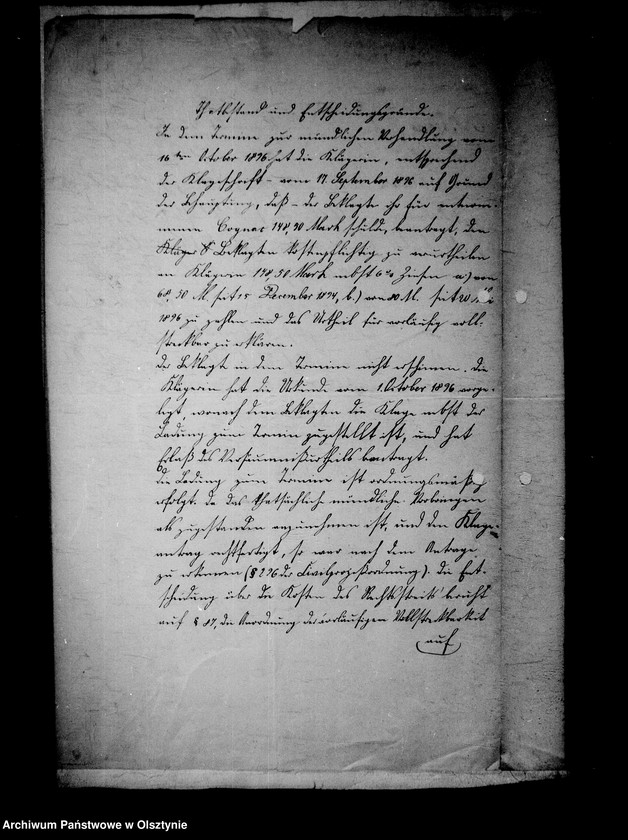 Thatbestand und Entscheidungsgründe.
In dem Termine zur mündlichen Verhandlung vom
16ten October 1896 hat die Klägerin, entsprechend
der Klageschrift vom 17. September 1896 auf Grund
der Behauptung, daß der Beklagte ihr für entnom-
menen Cognac 148,50 Mark schulde, beantragt, den
Kläger Beklagten kostenpflichtig zu verurtheilen
an Klägerin 148,50 Mark nebst 6% Zinsen a) von
68,50 M. seit 15 December 1894, b.) von 80 M. seit 20
1896 zu zahlen und das Urtheil für vorläufig voll-
streckbar zu erklären.
Der Beklagte in dem Termine nicht erschienen. Die
Klägerin hat die Urkunde vom 1. October 1896 vorge-
legt, wonach dem Beklagten die Klage nebst der
Ladung zum Termin zugestellt ist, und hat
Erlaß des Versäumnißurtheils beantragt.
Die Ladung zum Termine ist ordnungsmäßig
erfolgt. Da das thatsächliche mündliche Vorbringen
als zugestanden anzunehmen ist, und den Klage-
antrag rechtfertigt, so war nach dem Antrage
zu erkennen (§ 296 der Civilprozeßordnung). Die Ent-
scheidung über die Kosten des Rechtsstreits beruht
auf § 87, die Anordnung der vorläufigen Vollstreckbarkeit
auf
Archiwum Państwowe w Olsztynie